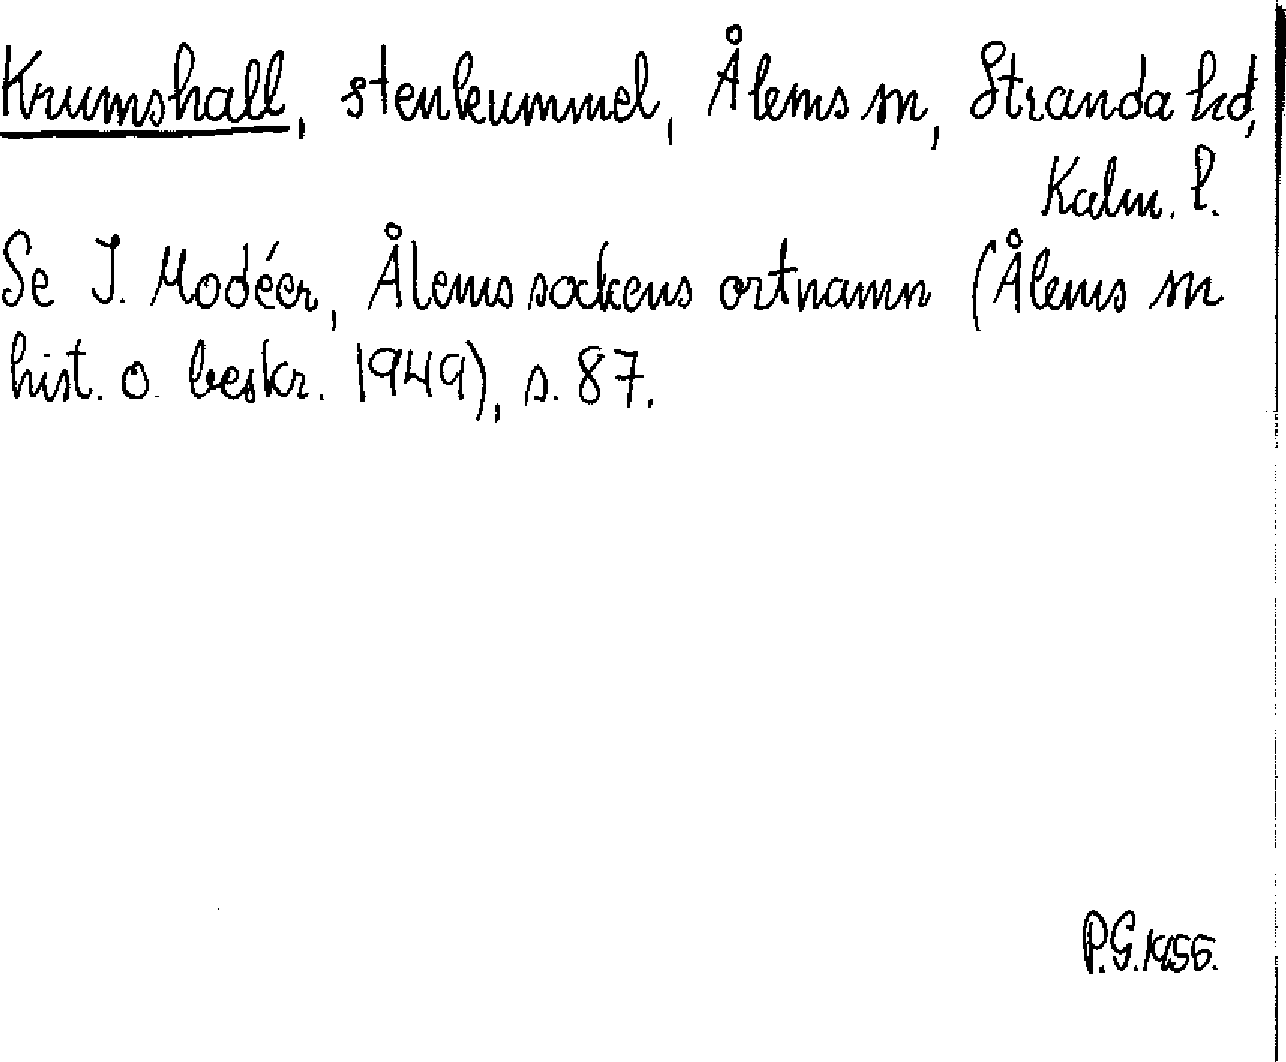 Krumshall, stenkummel, Ålems sn, Stranda hd,
Kalm. l.
Se I. Modéer, Ålems sockens ortnamn (Ålems sn
hist. o. beskr. 1949), s. 87.
P.G. 1956.